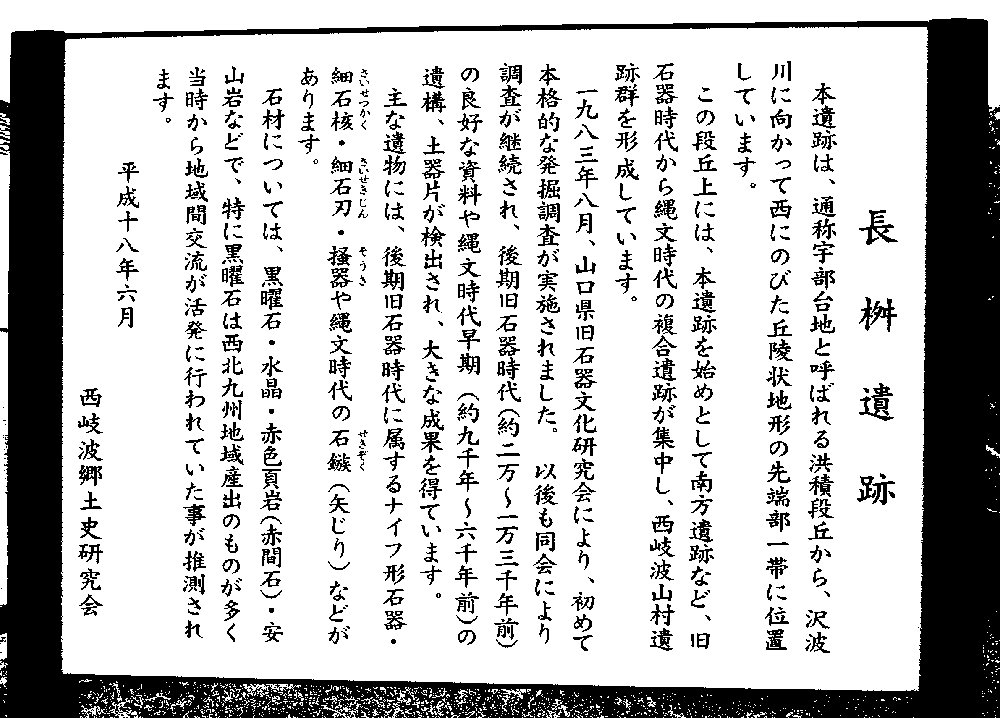 長桝遺跡
本遺跡は、通称宇部台地と呼ばれる洪積段丘から、沢波
川に向かって西にのびた丘陵状地形の先端部一帯に位置
しています。
この段丘上には、本遺跡を始めとして南方遺跡など、旧
石器時代から縄文時代の複合遺跡が集中し、西岐波山村遺
跡群を形成しています。
一九八三年八月、山口県旧石器文化研究会により、初めて
本格的な発掘調査が実施されました。以後も同会により
調査が継続され、後期旧石器時代(約二万～一万三千年前)
の良好な資料や縄文時代早期(約九千年～六千年前)の
遺構、土器片が検出され、大きな成果を得ています。
主な遺物には、後期旧石器時代に属するナイフ形石器・
細石核・細石刃・掻器や縄文時代の石鏃(矢じり)などが
さいせっかく さいせきじん そうき せきぞく
あります。
石材については、黒曜石・水晶・赤色頁岩(赤間石)・安
山岩などで、特に黒曜石は西北九州地域産出のものが多く
当時から地域間交流が活発に行われていた事が推測され
ます。
平成十八年六月
西岐波郷土史研究会